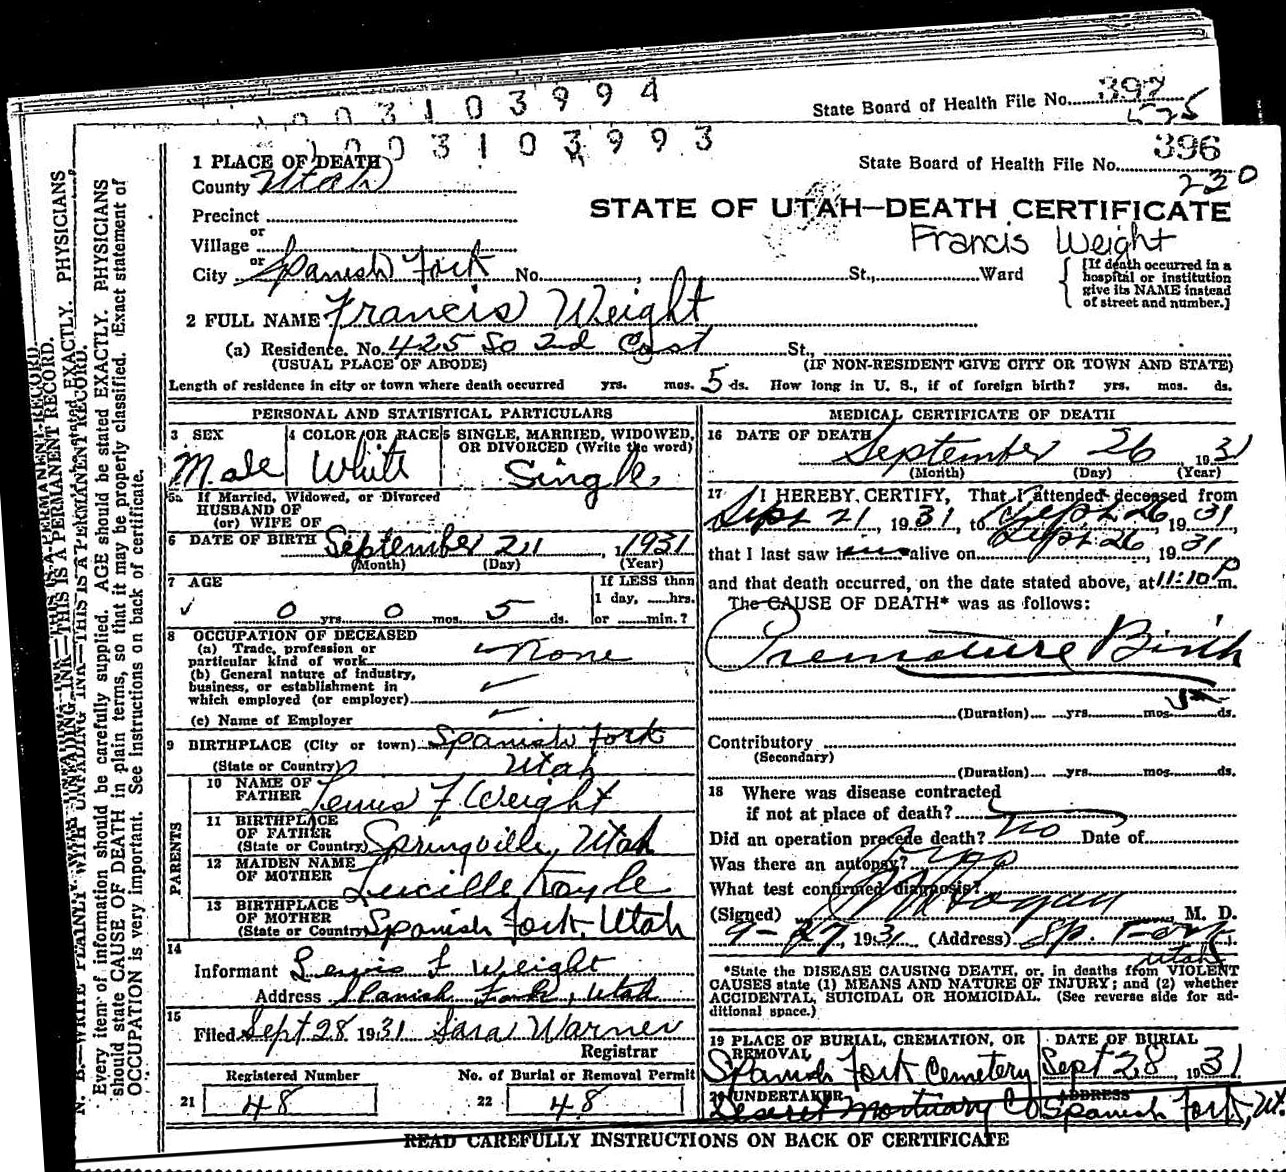 003103994
State Board of Health File No. 397
575
003103993
State Board of Health File No. 396
230
1 PLACE OF DEATH
County Utah
STATE OF UTAH—DEATH CERTIFICATE
Precinct
or
Village
Francis Weight
or
City Spanish Fork No. , St., Ward
[If death occurred in a hospital or institution give its NAME instead of street and number.]
2 FULL NAME Francis Weight
(a) Residence. No. 425 So 2nd East St.,
(USUAL PLACE OF ABODE) (IF NON-RESIDENT GIVE CITY OR TOWN AND STATE)
Length of residence in city or town where death occurred yrs. mos. 5 ds. How long in U. S., if of foreign birth? yrs. mos. ds.
PERSONAL AND STATISTICAL PARTICULARS
3 SEX
Male
4 COLOR OR RACE
White
5 SINGLE, MARRIED, WIDOWED,
OR DIVORCED (Write the word)
Single
5a If Married, Widowed, or Divorced
HUSBAND OF
(or) WIFE OF
6 DATE OF BIRTH September 21, 1931
(Month) (Day) (Year)
7 AGE
0 yrs. 0 mos. 5 ds.
If LESS than
1 day, ......hrs.
or ......min.?
8 OCCUPATION OF DECEASED
(a) Trade, profession or
particular kind of work None
(b) General nature of industry,
business, or establishment in
which employed (or employer)
(c) Name of Employer
9 BIRTHPLACE (City or town) Spanish Fork
(State or Country) Utah
PARENTS
10 NAME OF
FATHER Lewis F Weight
11 BIRTHPLACE
OF FATHER
(State or Country) Springville, Utah
12 MAIDEN NAME
OF MOTHER Lucille Koyle
13 BIRTHPLACE
OF MOTHER
(State or Country) Spanish Fork, Utah
14
Informant Lewis F Weight
Address Spanish Fork, Utah
15
Filed Sept 28 1931 Sara Warner
Registrar
Registered Number No. of Burial or Removal Permit
21 48 22 48
MEDICAL CERTIFICATE OF DEATH
16 DATE OF DEATH
September 26 1931
(Month) (Day) (Year)
17 I HEREBY CERTIFY, That I attended deceased from
Sept 21, 1931, to Sept 26, 1931,
that I last saw him alive on Sept 26, 1931
and that death occurred, on the date stated above, at 11:10 P m.
The CAUSE OF DEATH* was as follows:
Premature Birth
(Duration) yrs. mos. ds.
Contributory
(Secondary)
(Duration) yrs. mos. ds.
18 Where was disease contracted
if not at place of death?
Did an operation precede death? No Date of
Was there an autopsy? No
What test confirmed diagnosis?
(Signed) Hogan, M. D.
9-27, 1931 (Address) Sp. Fork,
Utah
*State the DISEASE CAUSING DEATH, or, in deaths from VIOLENT
CAUSES state (1) MEANS AND NATURE OF INJURY; and (2) whether
ACCIDENTAL, SUICIDAL OR HOMICIDAL. (See reverse side for ad-
ditional space.)
19 PLACE OF BURIAL, CREMATION, OR
REMOVAL
Spanish Fork Cemetery
DATE OF BURIAL
Sept 28, 1931
20 UNDERTAKER
Deseret Mortuary Co
ADDRESS
Spanish Fork, Ut.
READ CAREFULLY INSTRUCTIONS ON BACK OF CERTIFICATE
N. B.—WRITE PLAINLY WITH UNFADING INK—THIS IS A PERMANENT RECORD.
Every item of information should be carefully supplied. AGE should be stated EXACTLY. PHYSICIANS
should state CAUSE OF DEATH in plain terms, so that it may be properly classified. Exact statement of
OCCUPATION is very important. See instructions on back of certificate.